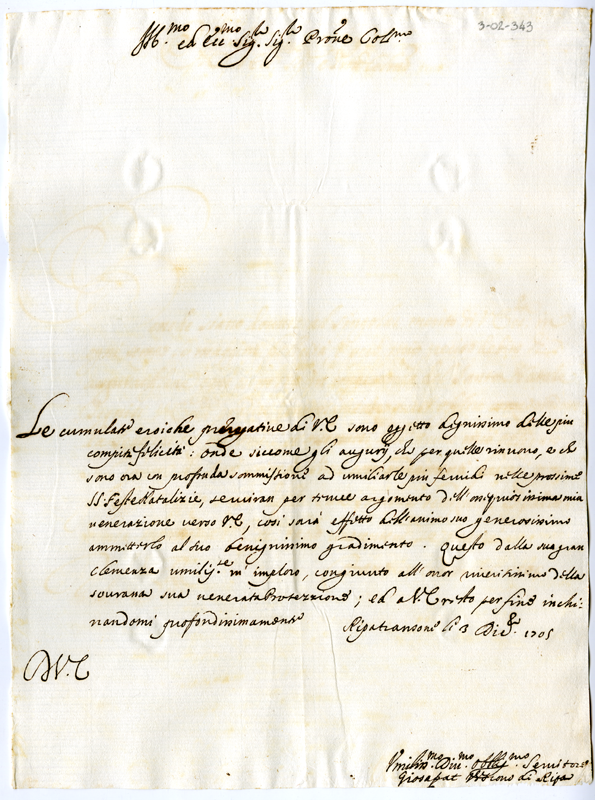 3-02-343
Ill.mo ed Ecc.mo Sig.re Sig.re Prone Col.mo
Le cumulate eroiche prerogative di V.E. sono oggetto dignissimo delle più
compite felicità: onde siccome gli augurj, che per quelle rinuovo, e che
sono ora con profonda sommissione ad umiliarle più fervidi nelle prossime
SS. Feste Natalizie, serviran per trarre argomento dell'ossequiosissima mia
venerazione verso V.E, così sarà effetto dell'animo suo generosissimo
ammetterlo al suo benignissimo gradimento. Questo dalla sua gran
clemenza umilm.te io imploro, congiunto all'onor riveritissimo della
sovrana sua venerata Protezzione; ed a V.E. resto per fine inchi-
nandomi profondissimamente Ripatransone li 3 Dic.bre 1705
D V.E
Umilis.mo Div.mo Obblig.mo Servitore
Giosafat di Ripa